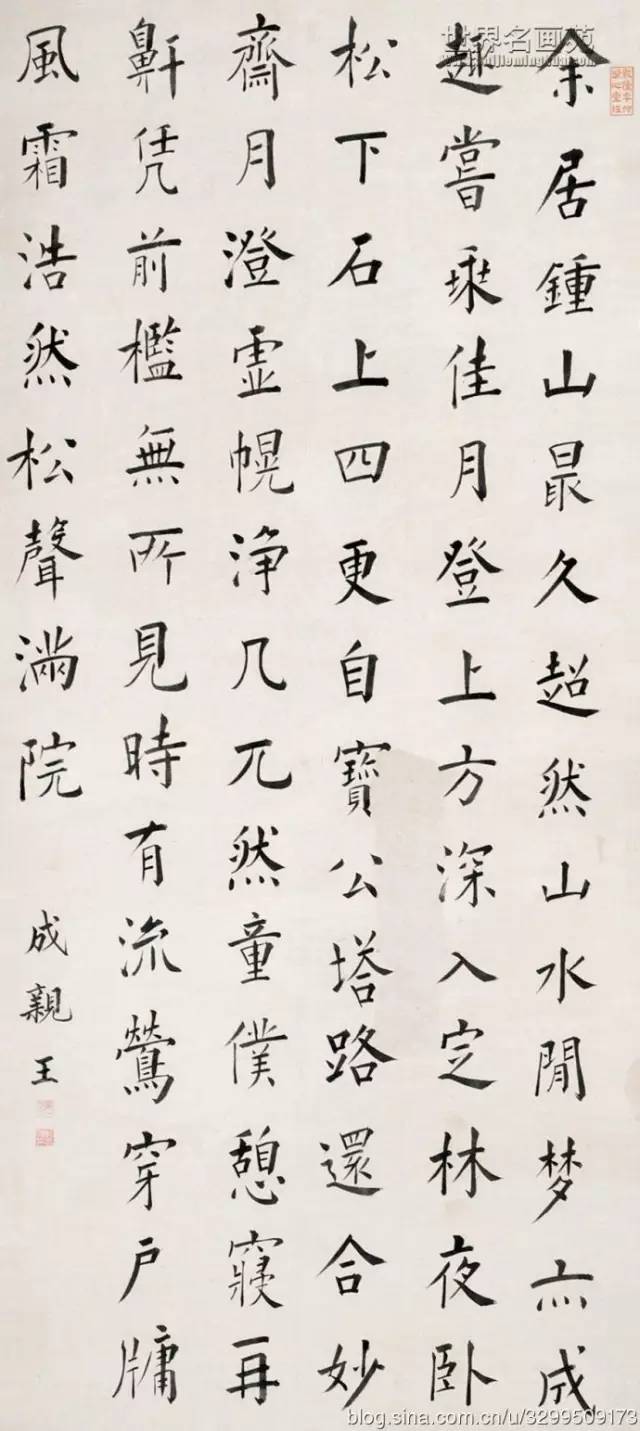 余居鍾山最久超然山水閒梦亦成
趣嘗乘佳月登上方深入定林夜臥
松下石上四更自寶公塔路還合妙
齋月澄虛幌浄几兀然童僕憩寢再
鼾凭前檻無所見時有流鶯穿户牖
風霜浩然松聲滿院
成親王
世界名画苑
blog.sina.com.cn/u/3299509173